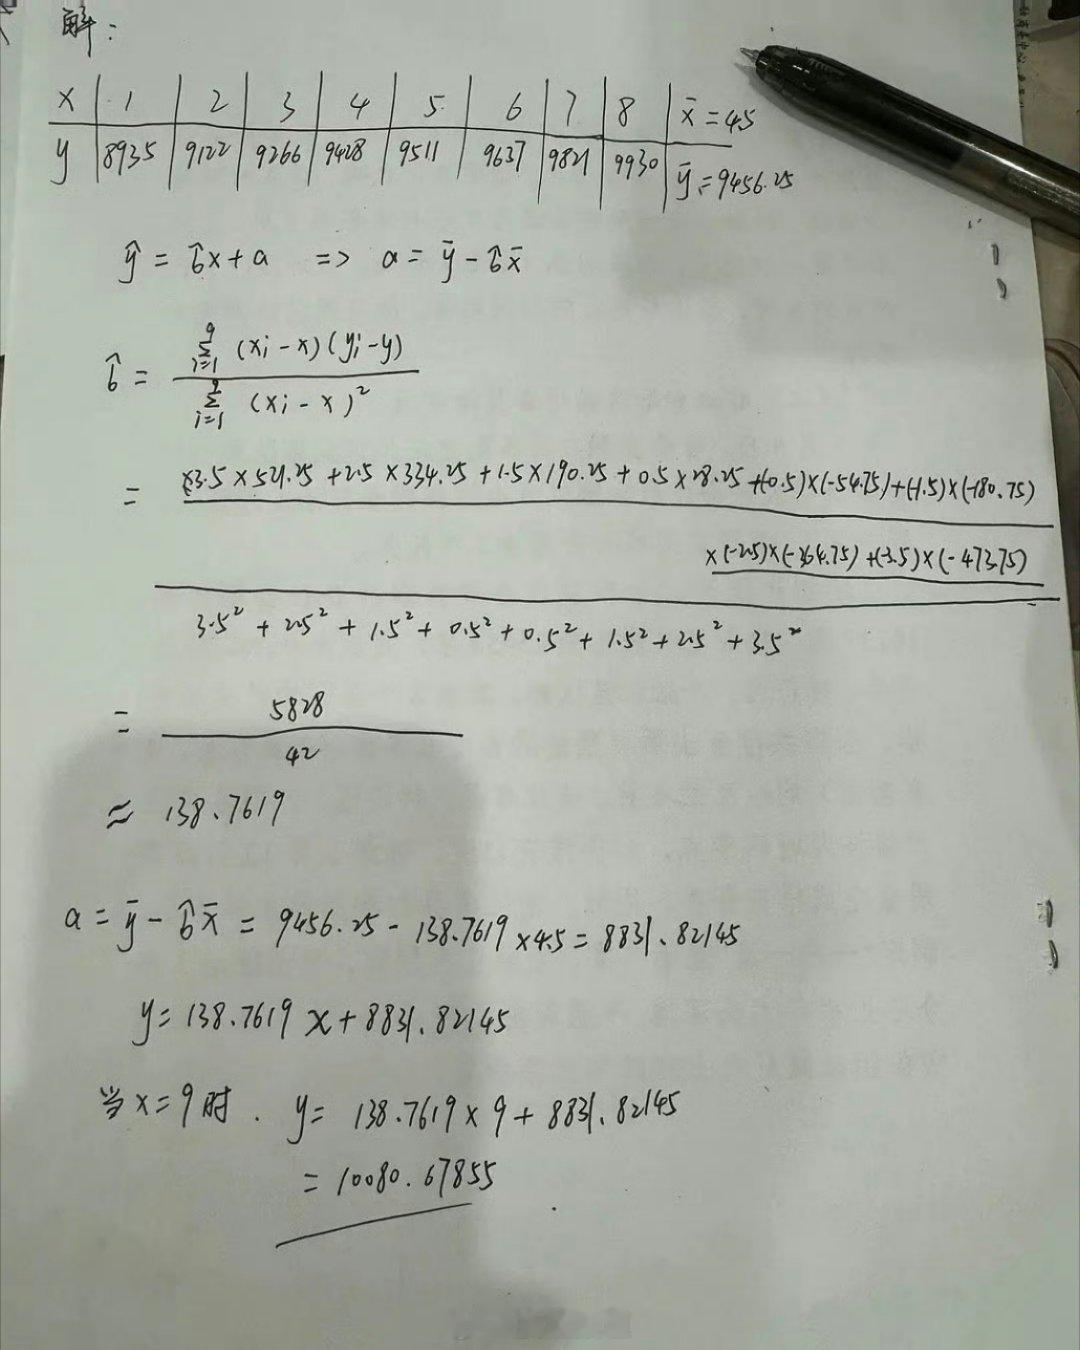 解：
x 1 2 3 4 5 6 7 8 x̄=4.5
y 8935 9122 9266 9428 9511 9637 9821 9930 ȳ=9456.25
ŷ = b̂x+a => a= ȳ-b̂x̄
b̂ = Σ(xi-x)(yi-y)
Σ(xi-x)²
= ×3.5×521.25+2.5×334.25+1.5×190.25+0.5×28.25+(0.5)×(-54.75)+(-1.5)×(-180.75)
×(-2.5)×(-364.75)+(-3.5)×(-473.75)
3.5²+2.5²+1.5²+0.5²+0.5²+1.5²+2.5²+3.5²
= 5828
42
≈ 138.7619
a = ȳ-b̂x̄ = 9456.25-138.7619×4.5=8831.82145
y=138.7619x+8831.82145
当x=9时. y= 138.7619×9+8831.82145
=10080.67855